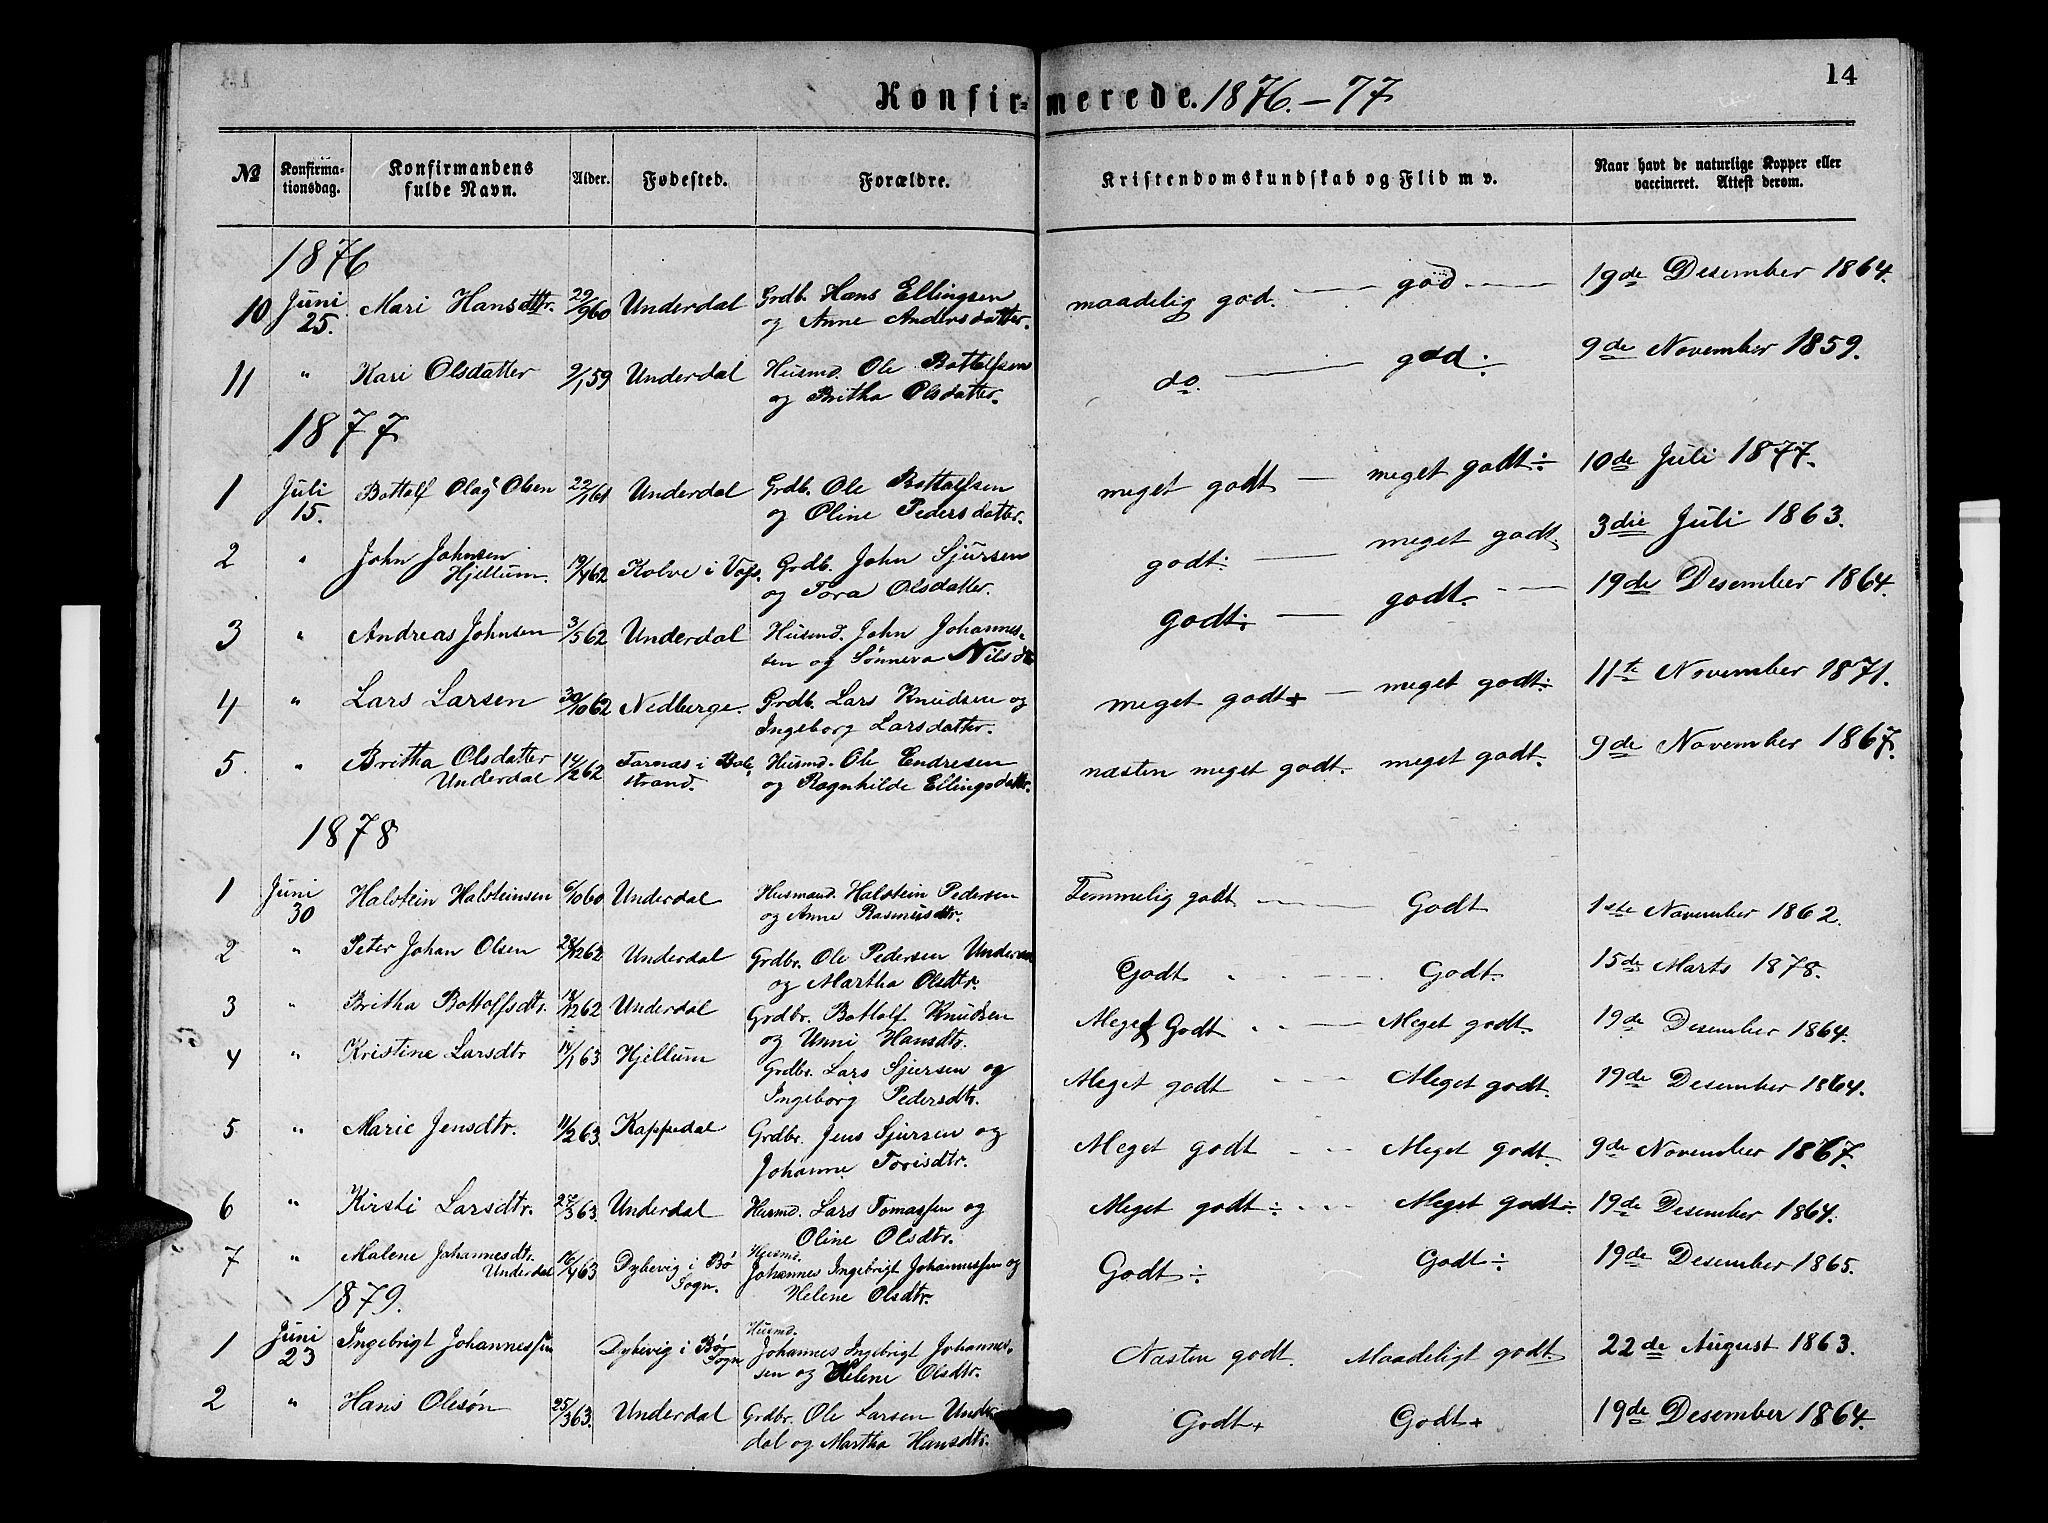 14
Konfirmerede. 1876.-77
№ Konfirmationsdag. Konfirmandens fulde Navn. Alder. Fødested. Forældre. Kristendomskundskab og Flid m v. Naar havt de naturlige Kopper eller vaccineret. Attest derom.
1876
10 Juni 25. Mari Hansdttr. 29/960 Underdal Grdb. Hans Ellingsen og Anne Andersdatter. maadelig god. god 19de Desember 1864.
11 " Kari Olsdatter 9/1 59 Underdal Husmd. Ole Bottolfsen og Britha Olsdatter. do. god. 9de November 1859.
1877
1 Juli 15. Bottolf Olaf Olsen 22/161 Underdal Grdb. Ole Bottolfsen og Oline Pedersdatter. meget godt meget godt÷ 10de Juli 1877.
2 " John Johnsen Hjellum. 19/462 Kolve i Vofs. Grdb. John Sjursen og Tora Olsdatter. godt. meget godt. 3die Juli 1863.
3 " Andreas Johnsen 3/562 Underdal Husmd. John Johannessen og Sønneva Nilsdtr godt÷ godt. 19de Desember 1864.
4 " Lars Larsen 30/1062 Nedberge. Grdb. Lars Knudsen og Ingeborg Larsdatter. meget godt+ meget godt÷ 11te November 1871.
5 " Britha Olsdatter Underdal 14/262 Farnæs i Balestrand. Husmd. Ole Endresen og Ragnhilde Ellingsdatter. næsten meget godt. meget godt. 9de November 1867.
1878
1 Juni 30 Halstein Halsteinsen 6/1060 Underdal Husmand. Halstein Pedersen og Anne Rasmusdtr. Temmelig godt Godt 1ste November 1862.
2 " Peter Johan Olsen 28/1262 Underdal Grdbr. Ole Pedersen Underdal og Martha Olsdtr. Godt Godt. 15de Marts 1878.
3 " Britha Bottolfsdtr. 18/1262 Underdal Grdbr. Bottolf Knudsen og Unni Hansdtr. Meget Godt Meget godt. 19de Desember 1864.
4 " Kristine Larsdtr 14/163 Hjellum Grdbr. Lars Sjursen og Ingeborg Pedersdtr. Meget godt Meget godt. 19de Desember 1864.
5 " Marie Jensdtr. 11/263. Kappadal Grdbr. Jens Sjursen og Johanne Torisdtr. Meget godt Meget godt. 9de November 1867.
6 " Kirsti Larsdtr. 27/363. Underdal Husmd. Lars Tomassen og Oline Olsdtr. Meget godt÷ Meget godt÷ 19de Desember 1864.
7 " Malene Johannesdtr. Underdal 16/463 Dybevig i Bø Sogn. Husmd. Johannes Ingebrigt Johannessen og Helene Olsdtr. Godt÷ Godt÷ 19de Desember 1865.
1879.
1 Juni 23 Ingebrigt Johannessen Dybevig i Bø Sogn Husmd. Johannes Ingebrigt Johannessen og Helene Olsdtr. Næsten godt. Maadeligt godt. 22de August 1863.
2 " Hans Olesøn 25/363. Underdal Grdbr. Ole Larsen Underdal og Martha Hansdtr. Godt+ Godt+ 19de Desember 1864.